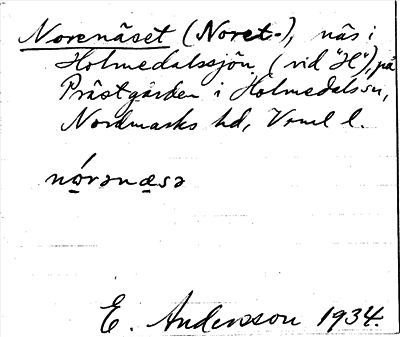 Norenäset (Noret-), näs i
Holmedalssjön (vid "H"), på
Prästgården i Holmedals sn,
Nordmarks hd, Vrml l.
nórənæsə
E. Andersson 1934.